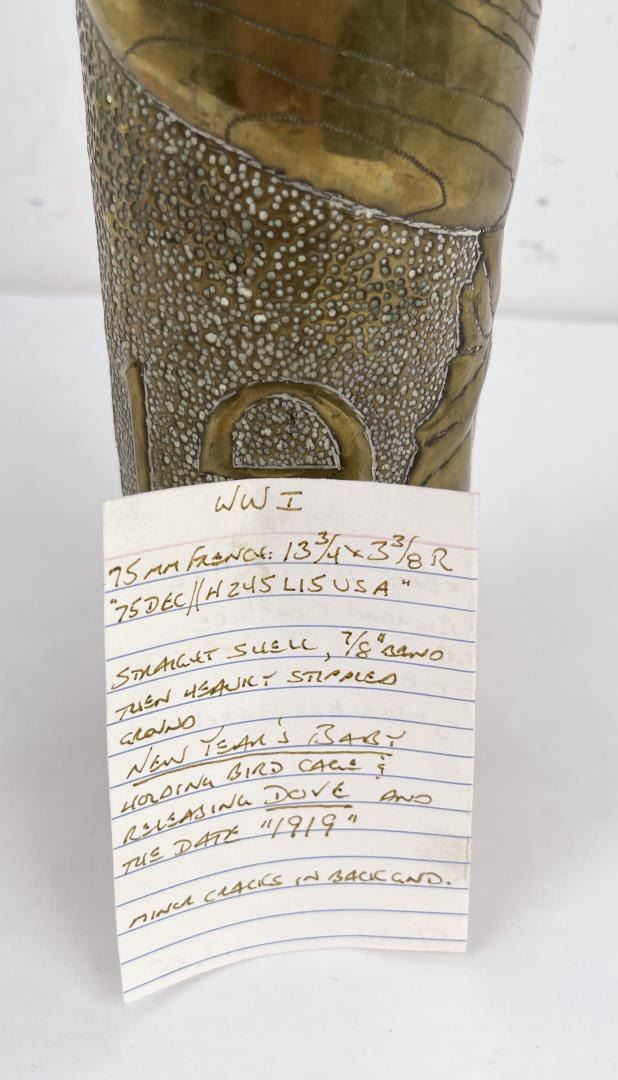 WWI
75MM FRENCH: 13 3/4 x 3 3/8 R
"75DEC//H245L15USA"
STRAIGHT SHELL, 7/8" BAND
THEN HEAVILY STIPPLED
GROUND
NEW YEAR'S BABY
HOLDING BIRD CAGE &
RELEASING DOVE AND
THE DATE "1919"
MINOR CRACKS IN BACKGND.